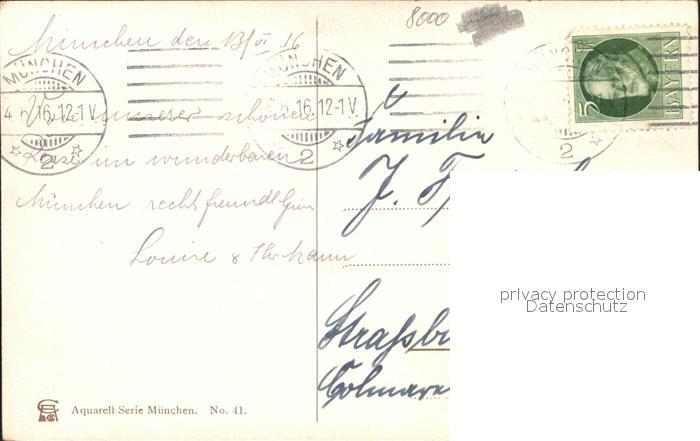 8000
München den 13/VI 16
MÜNCHEN
4.6.16.12-1V.
2
MÜNCHEN
6.16.12-1V.
2
MÜNC
2
5
BAYERN
unserer schönen
Reise im wunderbaren
München recht freundl.
Louise &
Familie
J.
Straßbu
Colmare
privacy protection
Datenschutz
Aquarell-Serie München. No. 41.